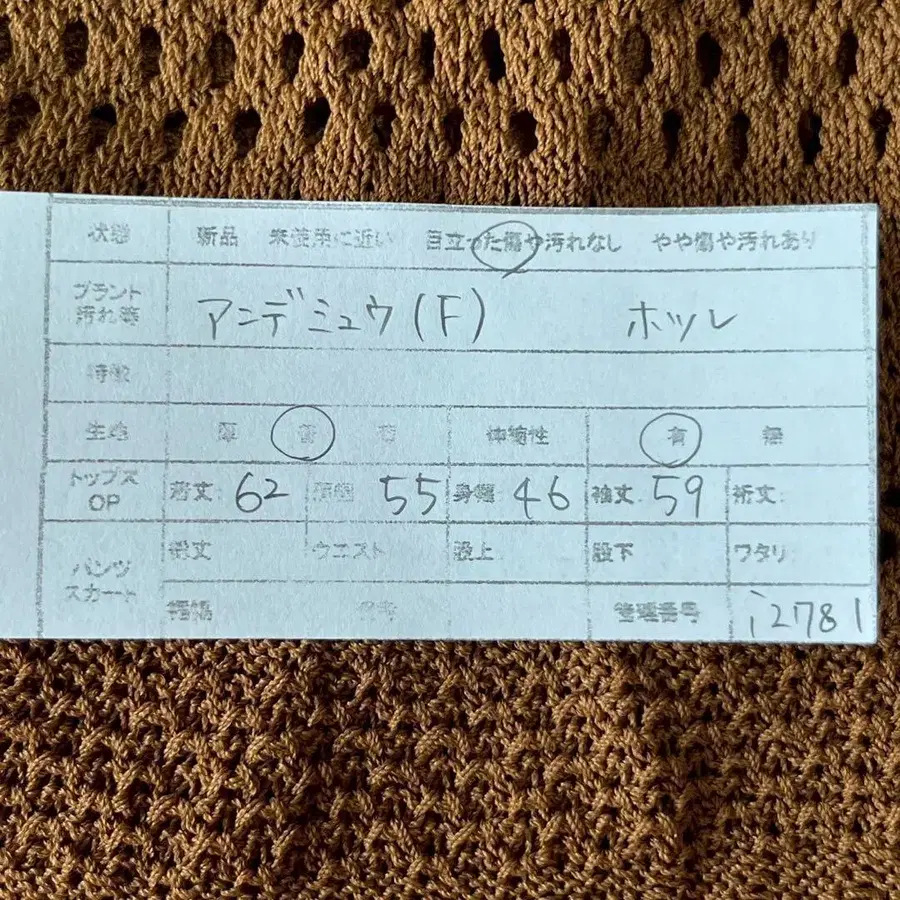 状態 新品 未使用に近い 目立った傷や汚れなし やや傷や汚れあり
ブランド 汚れ等 アンデミュウ(F) ホツレ
特徴
生地 厚 普 伸縮性 有 無
トップス OP 着丈: 62 55 身幅 46 袖丈: 59 裄丈:
パンツ スカート 総丈 ウエスト 股上 股下 ワタリ
裾幅 管理番号 i2781